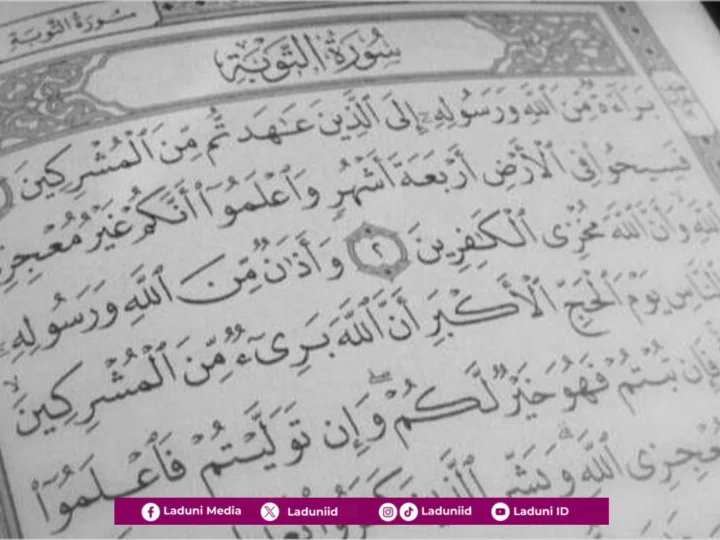 سُورَةُ التَّوْبَةِ
سُورَةُ التَّوْبَةِ
بَرَآءَةٌ مِّنَ ٱللَّهِ وَرَسُولِهِۦٓ إِلَى ٱلَّذِينَ عَـٰهَدتُّم مِّنَ ٱلْمُشْرِكِينَ
فَسِيحُوا۟ فِى ٱلْأَرْضِ أَرْبَعَةَ أَشْهُرٍ وَٱعْلَمُوٓا۟ أَنَّكُمْ غَيْرُ مُعْجِزِى
ٱللَّهِ وَأَنَّ ٱللَّهَ مُخْزِى ٱلْكَـٰفِرِينَ ٢ وَأَذَٰنٌ مِّنَ ٱللَّهِ وَرَسُولِهِۦٓ
ٱلنَّاسِ يَوْمَ ٱلْحَجِّ ٱلْأَكْبَرِ أَنَّ ٱللَّهَ بَرِىٓءٌ مِّنَ ٱلْمُشْرِكِينَ
فَإِن تُبْتُمْ فَهُوَ خَيْرٌ لَّكُمْ ۖ وَإِن تَوَلَّيْتُمْ فَٱعْلَمُوٓا۟
مُعْجِزِى ٱللَّهِ ۗ وَبَشِّرِ ٱلَّذِينَ كَفَرُوا۟
Laduni Media Laduniid Laduniid Laduni ID